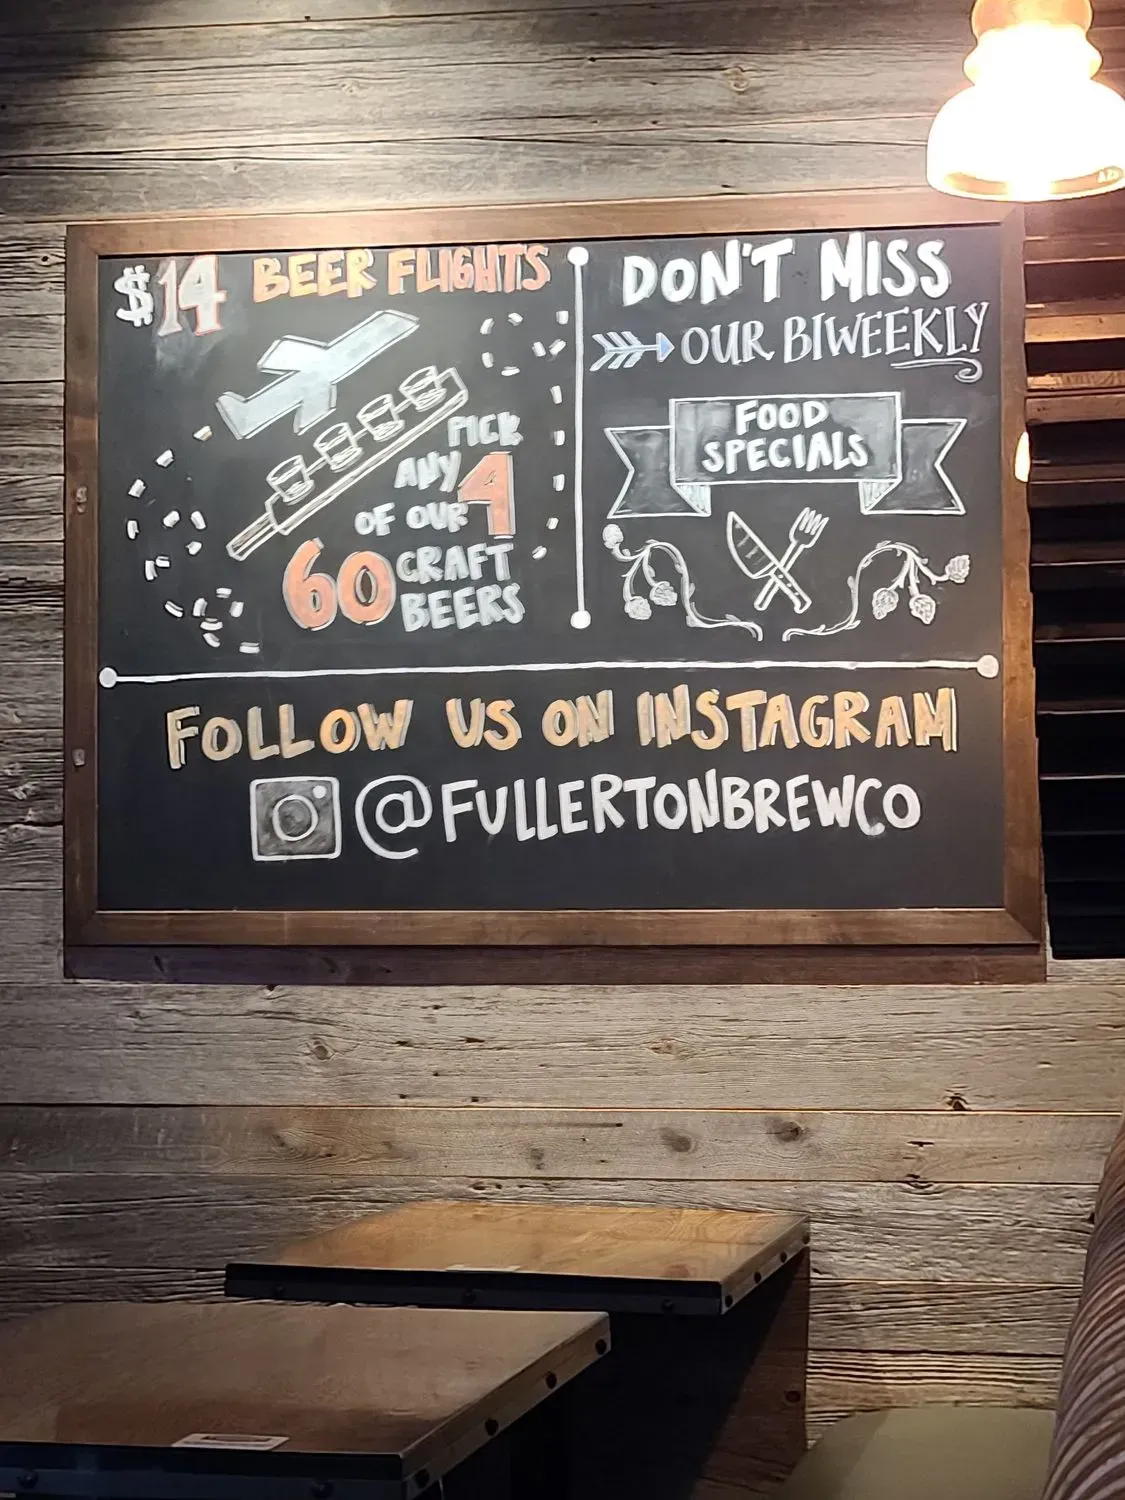 $14 BEER FLIGHTS
PICK
ANY 4
OF OUR
60 CRAFT
BEERS
DON'T MISS
OUR BIWEEKLY
FOOD
SPECIALS
FOLLOW US ON INSTAGRAM
@FULLERTONBREWCO